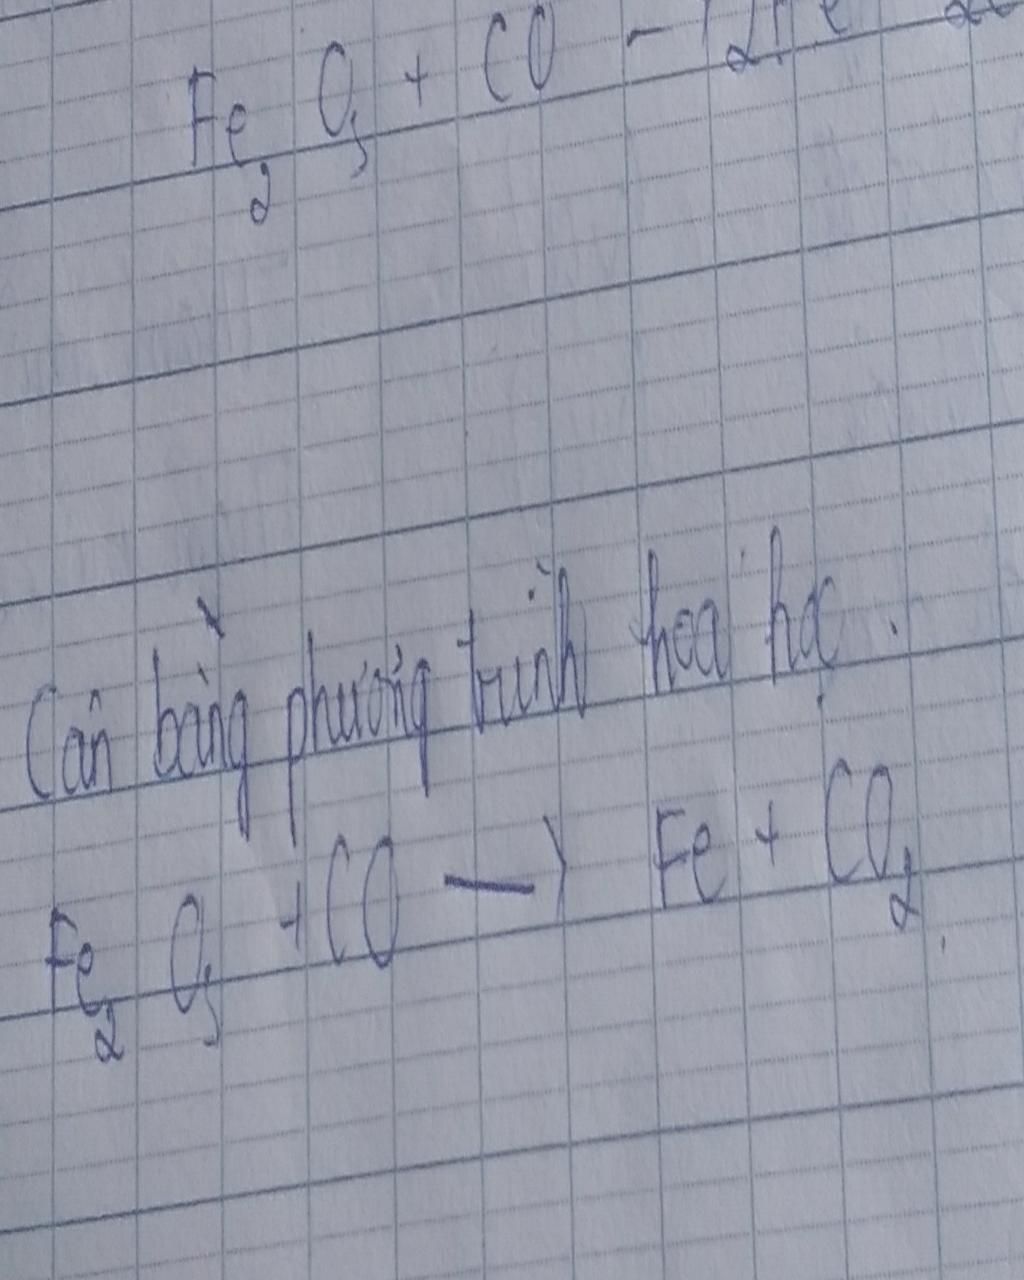 Fe₂O₃ + CO → 2Fe
Cân bằng phương trình hoá học.
Fe₂O₃ + CO → Fe + CO₂